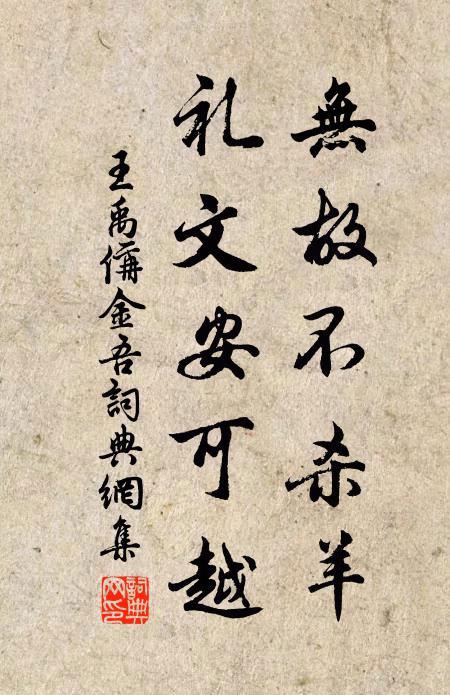 無故不杀羊
礼文安可越
王禹偁金吾詞典網集
詞典